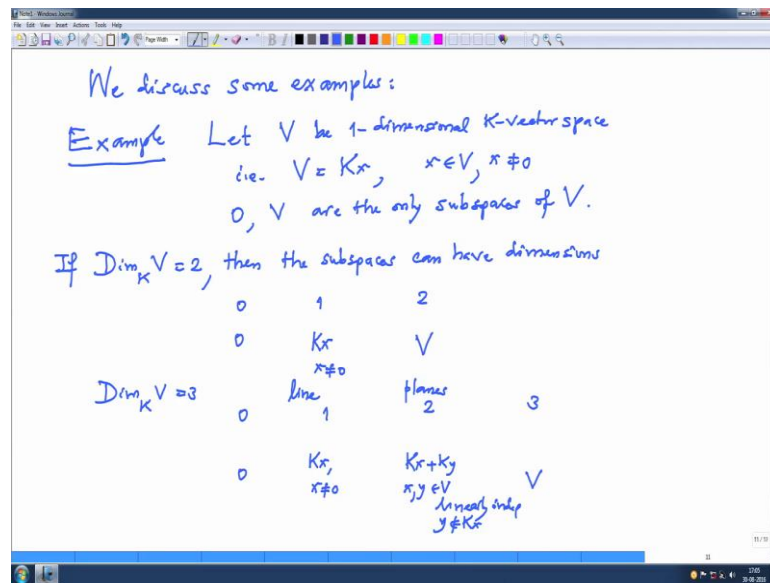 Note1 - Windows Journal
File Edit View Insert Actions Tools Help
Page Width
We discuss some examples:
Example Let V be 1-dimensional K-vector space
i.e. V = Kx, x ∈ V, x ≠ 0
0, V are the only subspaces of V.
If Dim_K V = 2, then the subspaces can have dimensions
0 1 2
0 Kx V
x ≠ 0
Dim_K V = 3 line planes
0 1 2 3
0 Kx, Kx + Ky V
x ≠ 0 x, y ∈ V
linearly indep
y ∉ Kx
11 / 10
11
17:05
30-08-2016